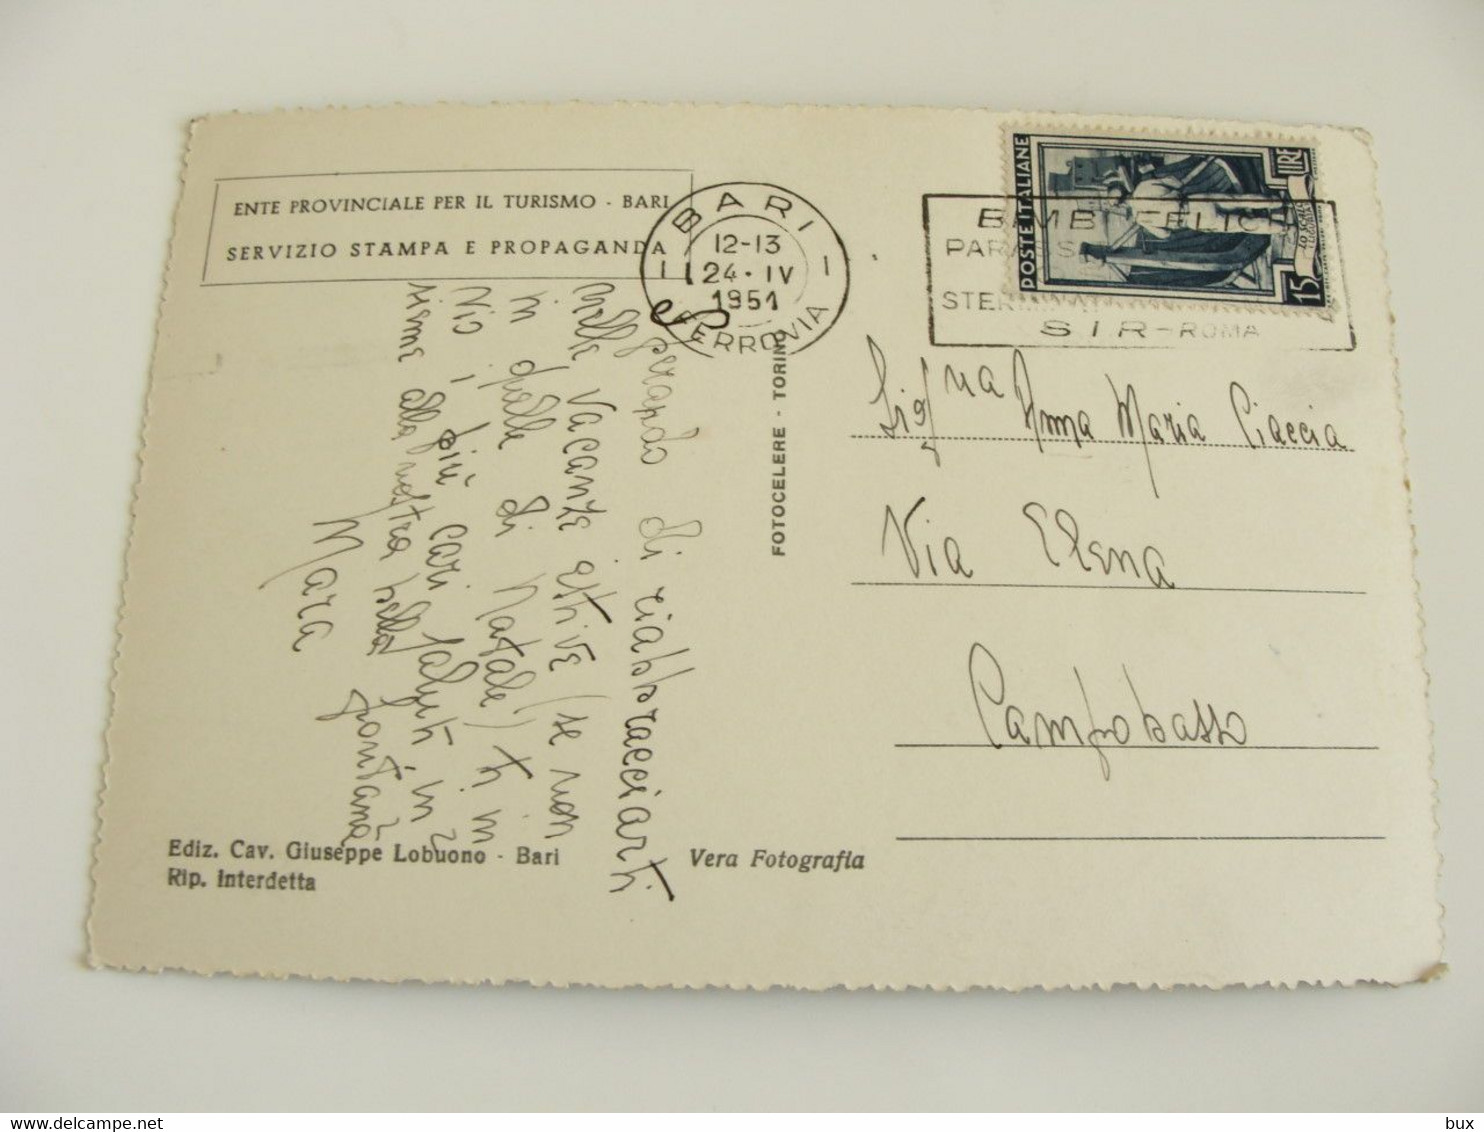 ENTE PROVINCIALE PER IL TURISMO - BARI
SERVIZIO STAMPA E PROPAGANDA
BARI
12-13
24·IV
1951
FERROVIA
POSTE ITALIANE
LIRE
15
BIMBI FELICI
STERM
SIR-ROMA
Sperando di riabbracciarti
nelle vacanze estive (se non
in quelle di Natale) ti in
vio i più cari saluti in
sieme alla nostra bella
fontana
Mara
FOTOCELERE - TORINO
Sig/na Anna Maria Ciaccia
Via Elena
Campobasso
Ediz. Cav. Giuseppe Lobuono - Bari
Rip. Interdetta
Vera Fotografia
bux